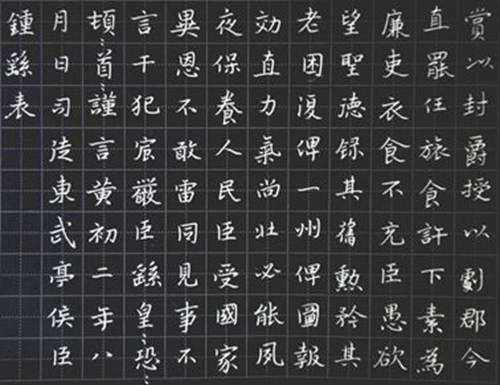 賞以封爵授以劇郡今
直罷任旅食許下素為
廉吏衣食不充臣愚欲
望聖德錄其舊勳矜其
老困復俾一州俾圖報
効直力氣尚壯必能夙
夜保養人民臣受國家
異恩不敢雷同見事不
言干犯宸嚴臣繇皇〻恐〻
頓〻首〻謹言黃初二年八
月日司徒東武亭侯臣
鍾繇表